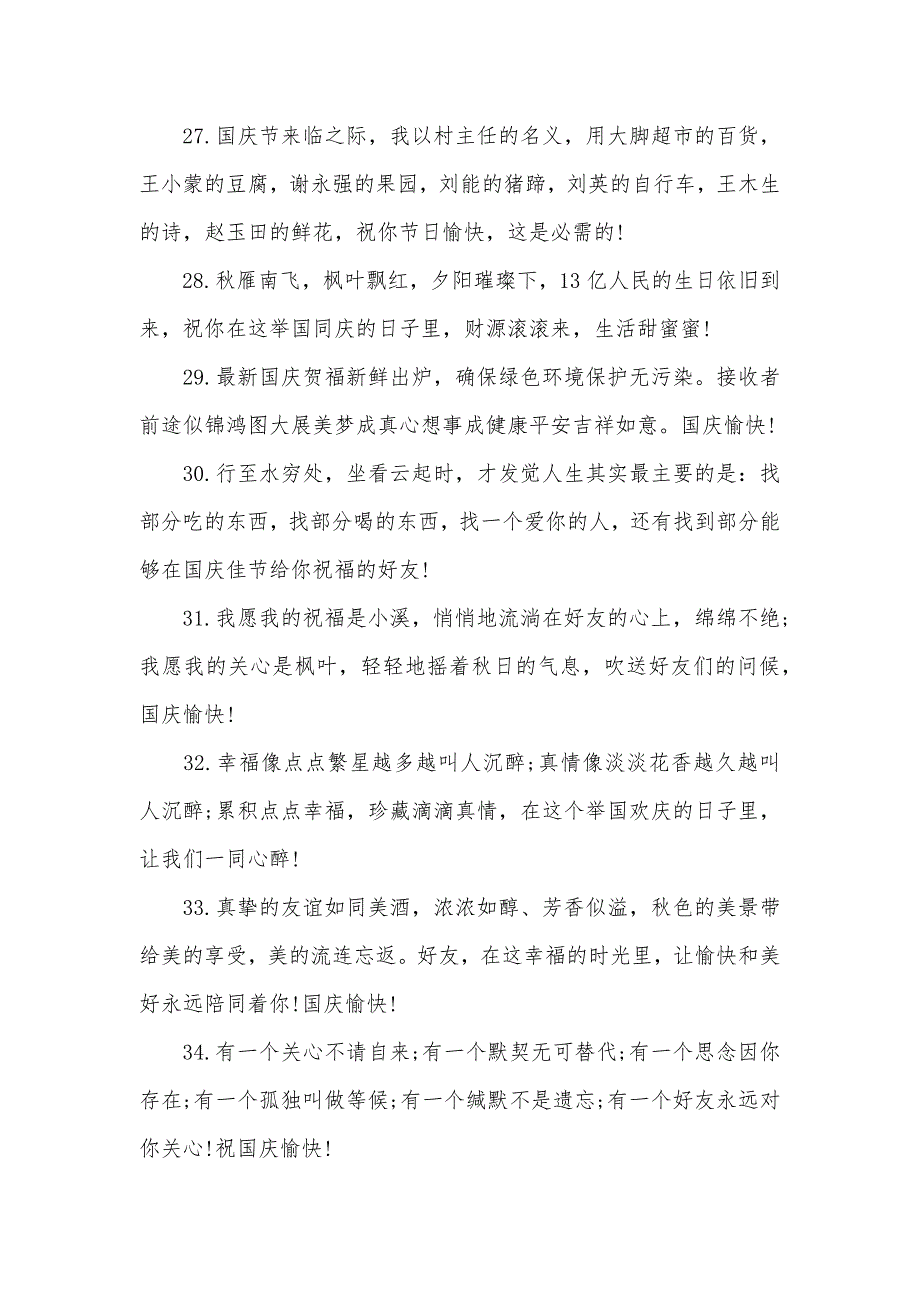 27.国庆节来临之际，我以村主任的名义，用大脚超市的百货，
王小蒙的豆腐，谢永强的果园，刘能的猪蹄，刘英的自行车，王木生
的诗，赵玉田的鲜花，祝你节日愉快，这是必需的!
28.秋雁南飞，枫叶飘红，夕阳璀璨下，13 亿人民的生日依旧到
来，祝你在这举国同庆的日子里，财源滚滚来，生活甜蜜蜜!
29.最新国庆贺福新鲜出炉，确保绿色环境保护无污染。接收者
前途似锦鸿图大展美梦成真心想事成健康平安吉祥如意。国庆愉快!
30.行至水穷处，坐看云起时，才发觉人生其实最主要的是：找
部分吃的东西，找部分喝的东西，找一个爱你的人，还有找到部分能
够在国庆佳节给你祝福的好友!
31.我愿我的祝福是小溪，悄悄地流淌在好友的心上，绵绵不绝;
我愿我的关心是枫叶，轻轻地摇着秋日的气息，吹送好友们的问候，
国庆愉快!
32.幸福像点点繁星越多越叫人沉醉;真情像淡淡花香越久越叫
人沉醉;累积点点幸福，珍藏滴滴真情，在这个举国欢庆的日子里，
让我们一同心醉!
33.真挚的友谊如同美酒，浓浓如醇、芳香似溢，秋色的美景带
给美的享受，美的流连忘返。好友，在这幸福的时光里，让愉快和美
好永远陪同着你!国庆愉快!
34.有一个关心不请自来;有一个默契无可替代;有一个思念因你
存在;有一个孤独叫做等候;有一个缄默不是遗忘;有一个好友永远对
你关心!祝国庆愉快!